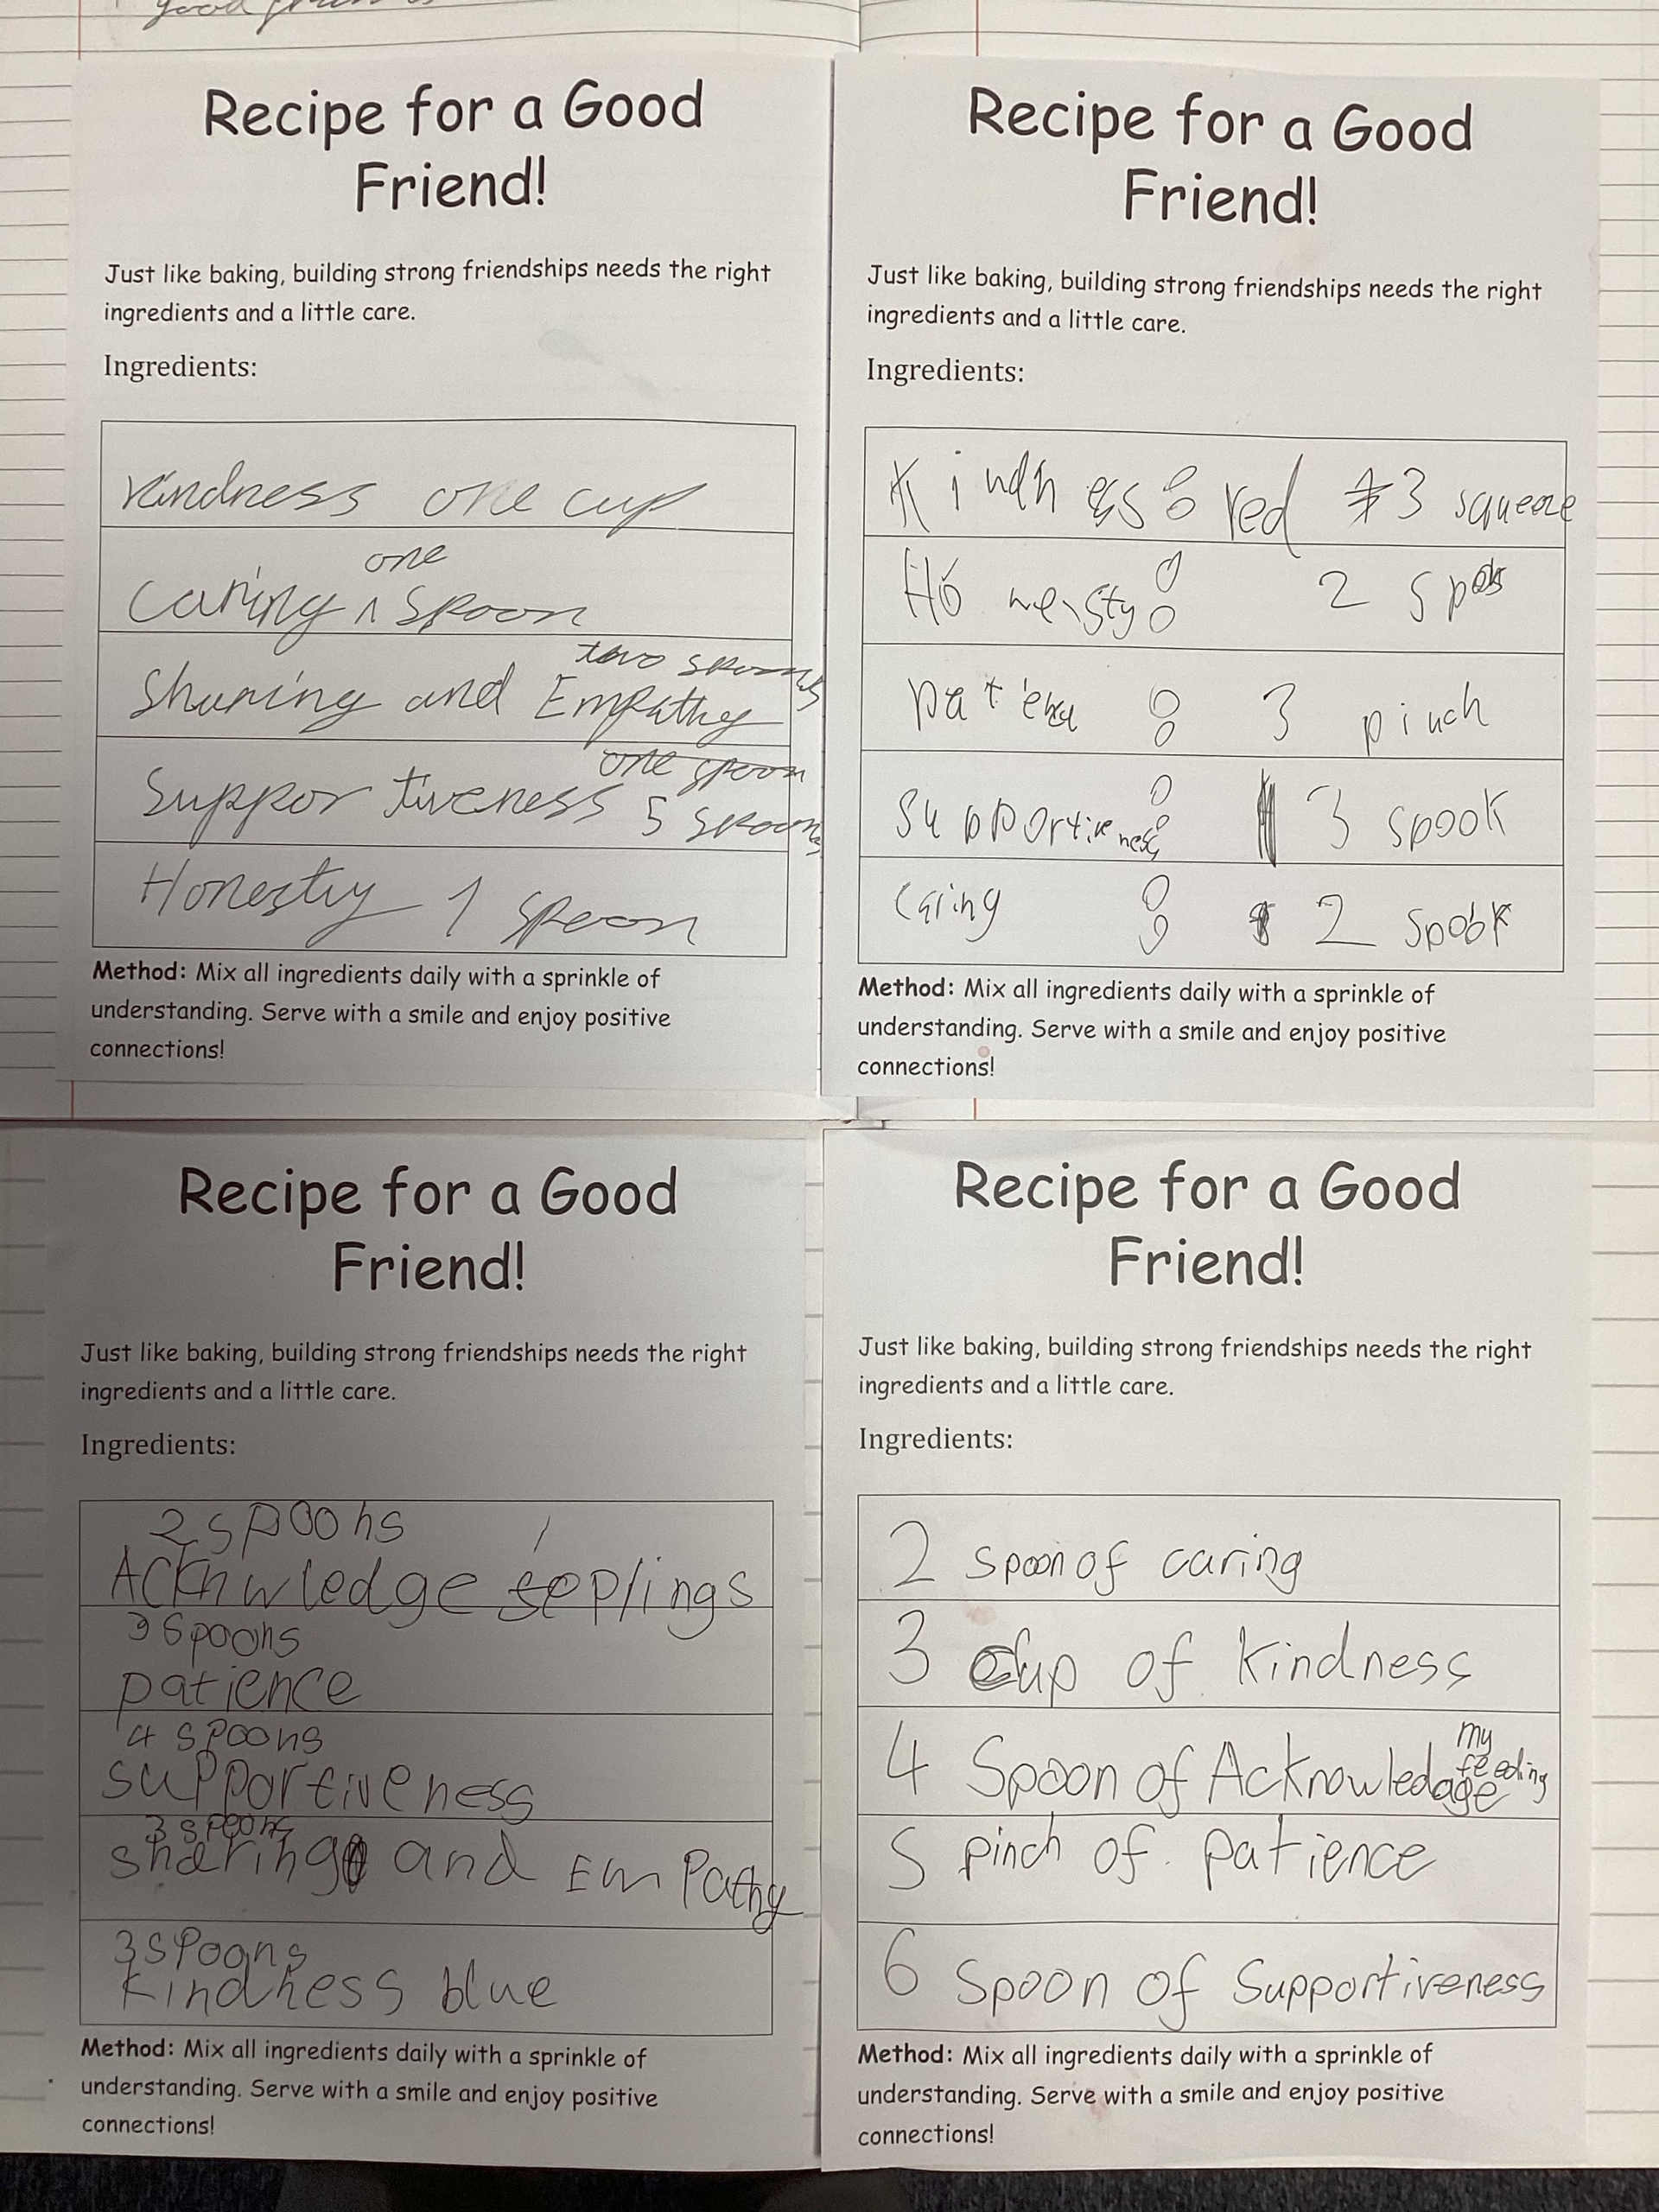 good
Recipe for a Good
Friend!
Just like baking, building strong friendships needs the right
ingredients and a little care.
Ingredients:
Kindness one cup
one
caring ^ spoon
two spoons
Sharing and Empathy
one spoon
Supportiveness 5 spoons
Honestry 1 spoon
Method: Mix all ingredients daily with a sprinkle of
understanding. Serve with a smile and enjoy positive
connections!
Recipe for a Good
Friend!
Just like baking, building strong friendships needs the right
ingredients and a little care.
Ingredients:
Kindness: red 3 squeeze
2
3 pinch
supportiveness: 3 spook
caring : 2 spook
Method: Mix all ingredients daily with a sprinkle of
understanding. Serve with a smile and enjoy positive
connections!
Recipe for a Good
Friend!
Just like baking, building strong friendships needs the right
ingredients and a little care.
Ingredients:
2 spoons
Acknwledge
3 spoons
patience
4 spoons
supportiveness
3 spoons
sharing and EmPathy
3 spoons
kindness blue
Method: Mix all ingredients daily with a sprinkle of
understanding. Serve with a smile and enjoy positive
connections!
Recipe for a Good
Friend!
Just like baking, building strong friendships needs the right
ingredients and a little care.
Ingredients:
2 spoon of caring
3 cup of kindness
my
4 Spoon of Acknowledge
5 pinch of patience
6 spoon of Supportiveness
Method: Mix all ingredients daily with a sprinkle of
understanding. Serve with a smile and enjoy positive
connections!